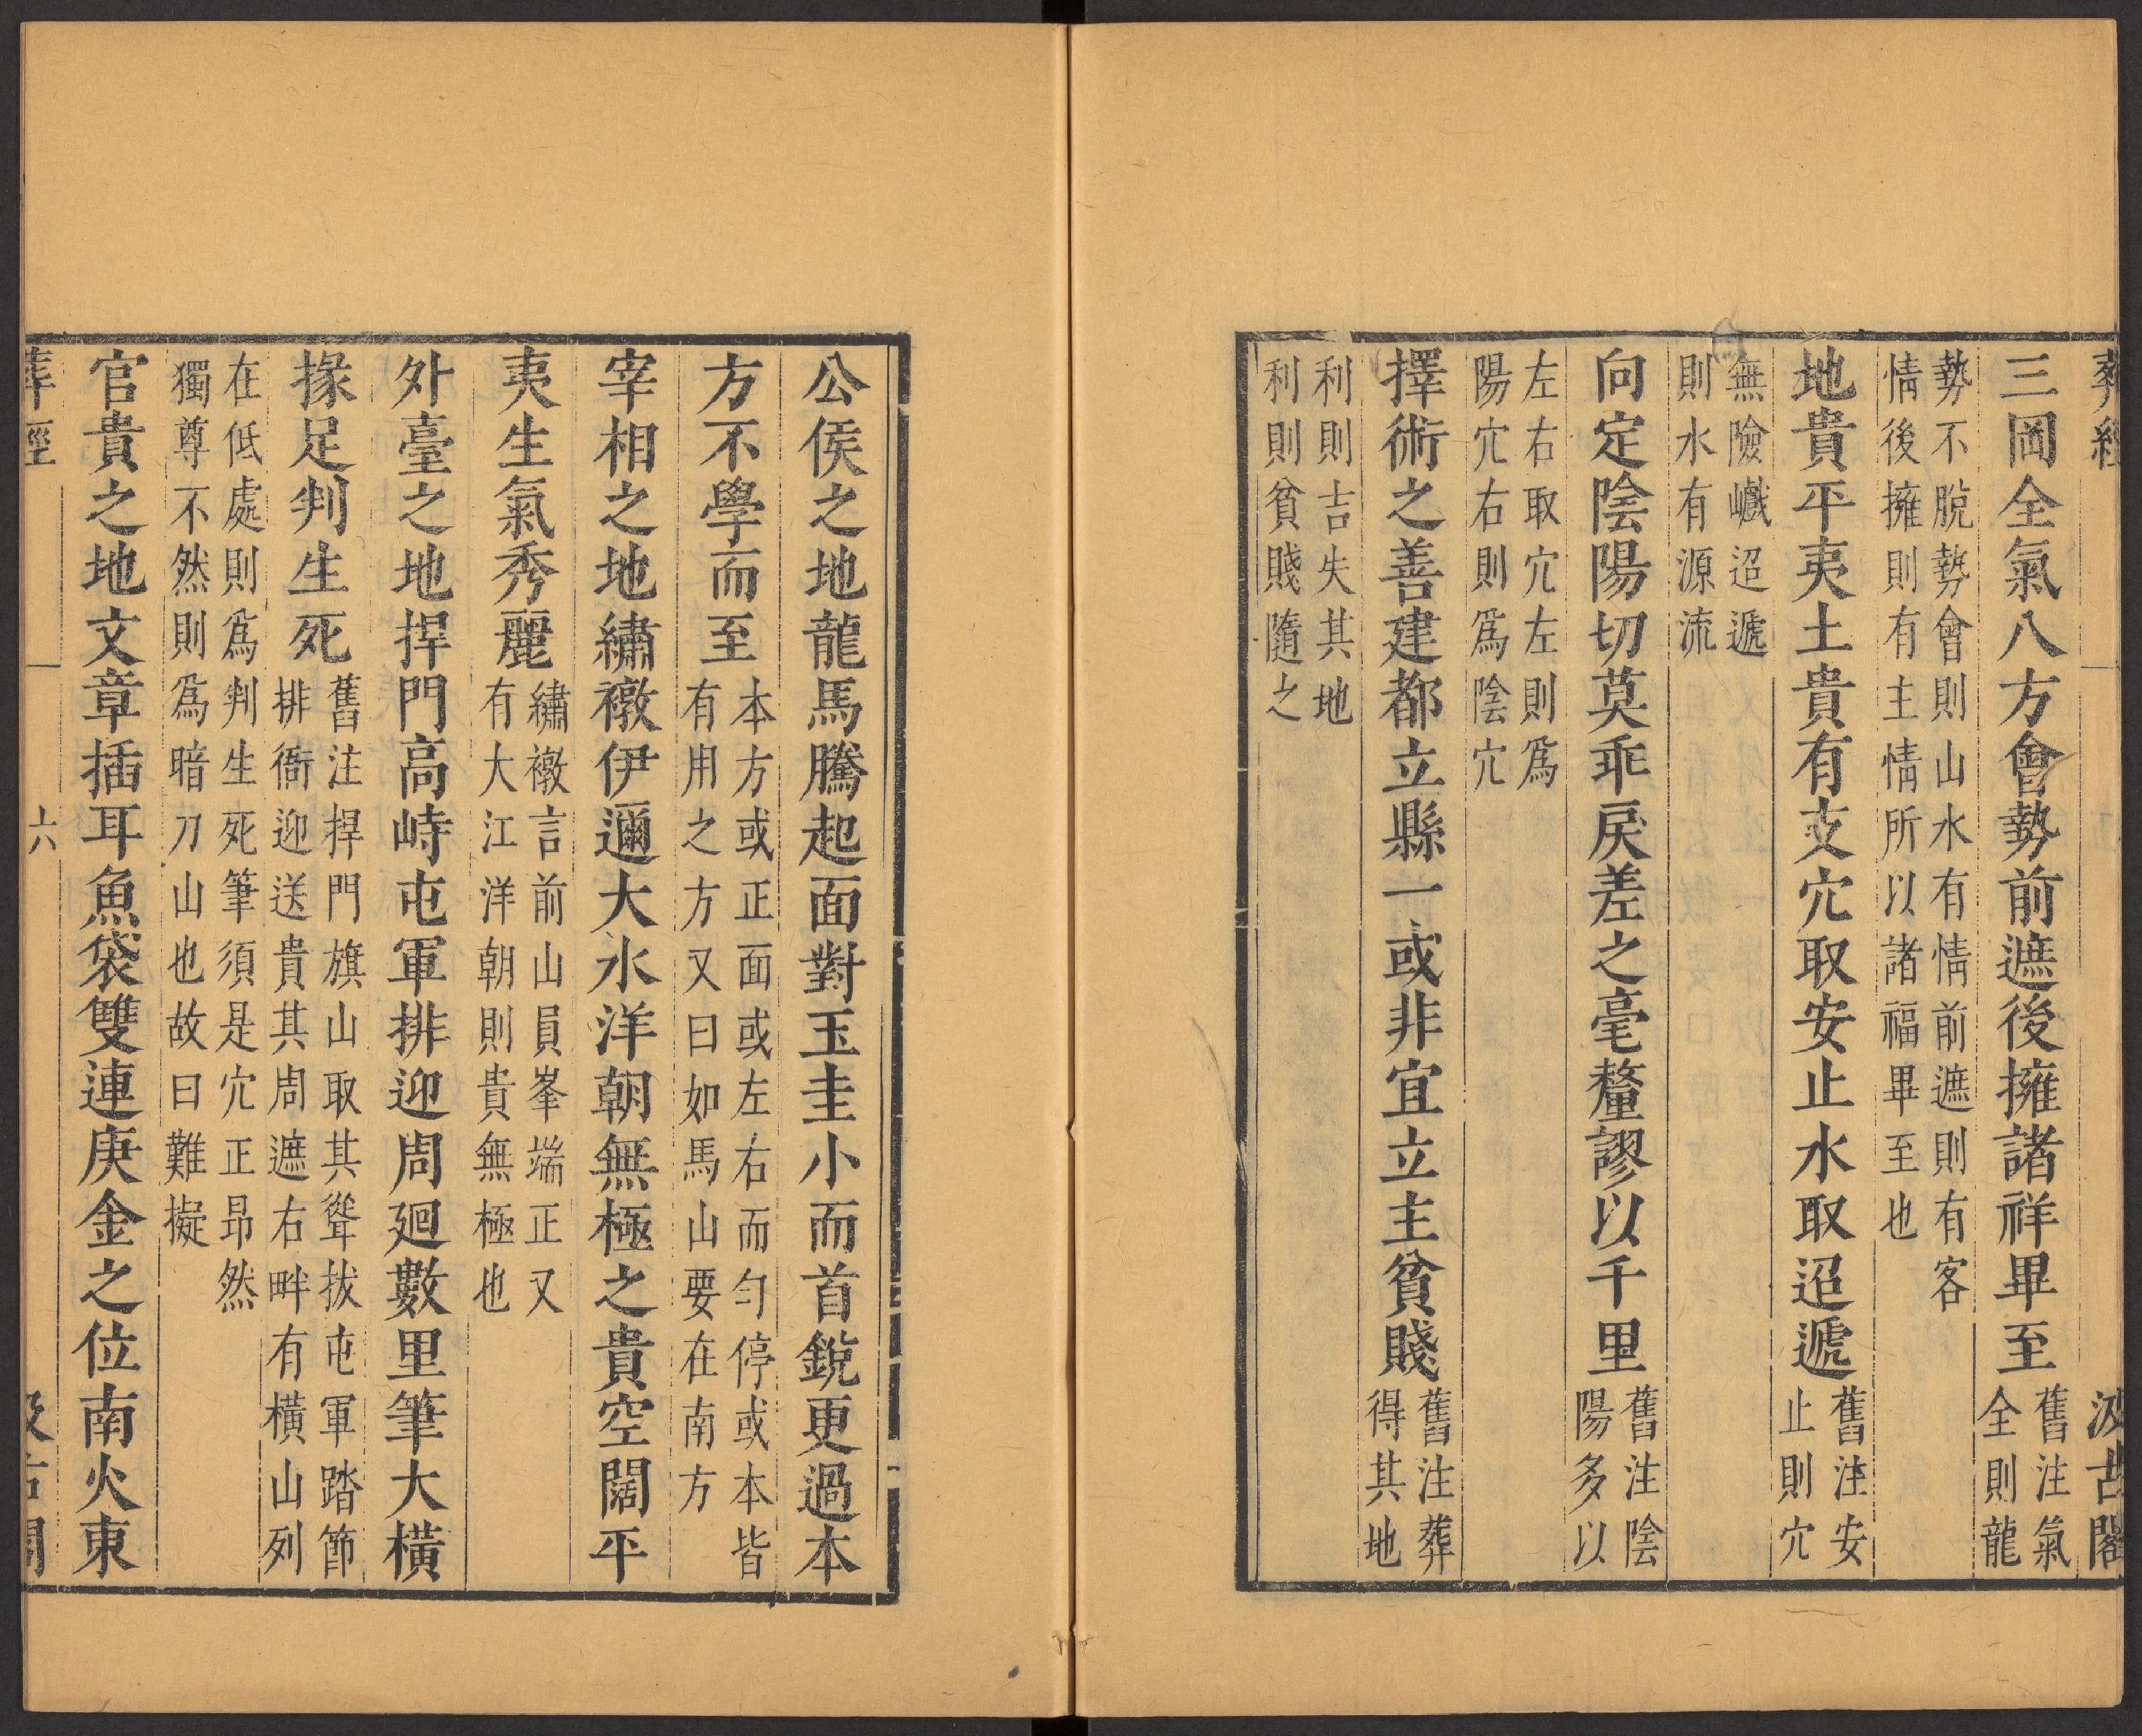 葬經
汲古閣
三岡全氣八方會勢前遮後擁諸祥畢至舊注氣
全則龍
勢不脫勢會則山水有情前遮則有客
情後擁則有主情所以諸福畢至也
地貴平夷土貴有支穴取安止水取迢遞舊注安
止則穴
無險巇迢遞
則水有源流
向定陰陽切莫乖戾差之毫釐謬以千里舊注陰
陽多以
左右取穴左則爲
陽穴右則爲陰穴
擇術之善建都立縣一或非宜立主貧賤舊注葬
得其地
利則吉失其地
利則貧賤隨之
公侯之地龍馬騰起面對玉圭小而首銳更過本
方不學而至本方或正面或左右而勻停或本皆
有用之方又曰如馬山要在南方
宰相之地繡襯伊邇大水洋朝無極之貴空闊平
夷生氣秀麗繡襯言前山員峯端正又
有大江洋朝則貴無極也
外臺之地捍門高峙屯軍排迎周廻數里筆大橫
掾足判生死舊注捍門旗山取其聳拔屯軍踏節
排衙迎送貴其周遮右畔有橫山列
在低處則爲判生死筆須是穴正昂然
獨尊不然則爲暗刀山也故曰難擬
官貴之地文章插耳魚袋雙連庚金之位南火東
葬經
六
汲古閣